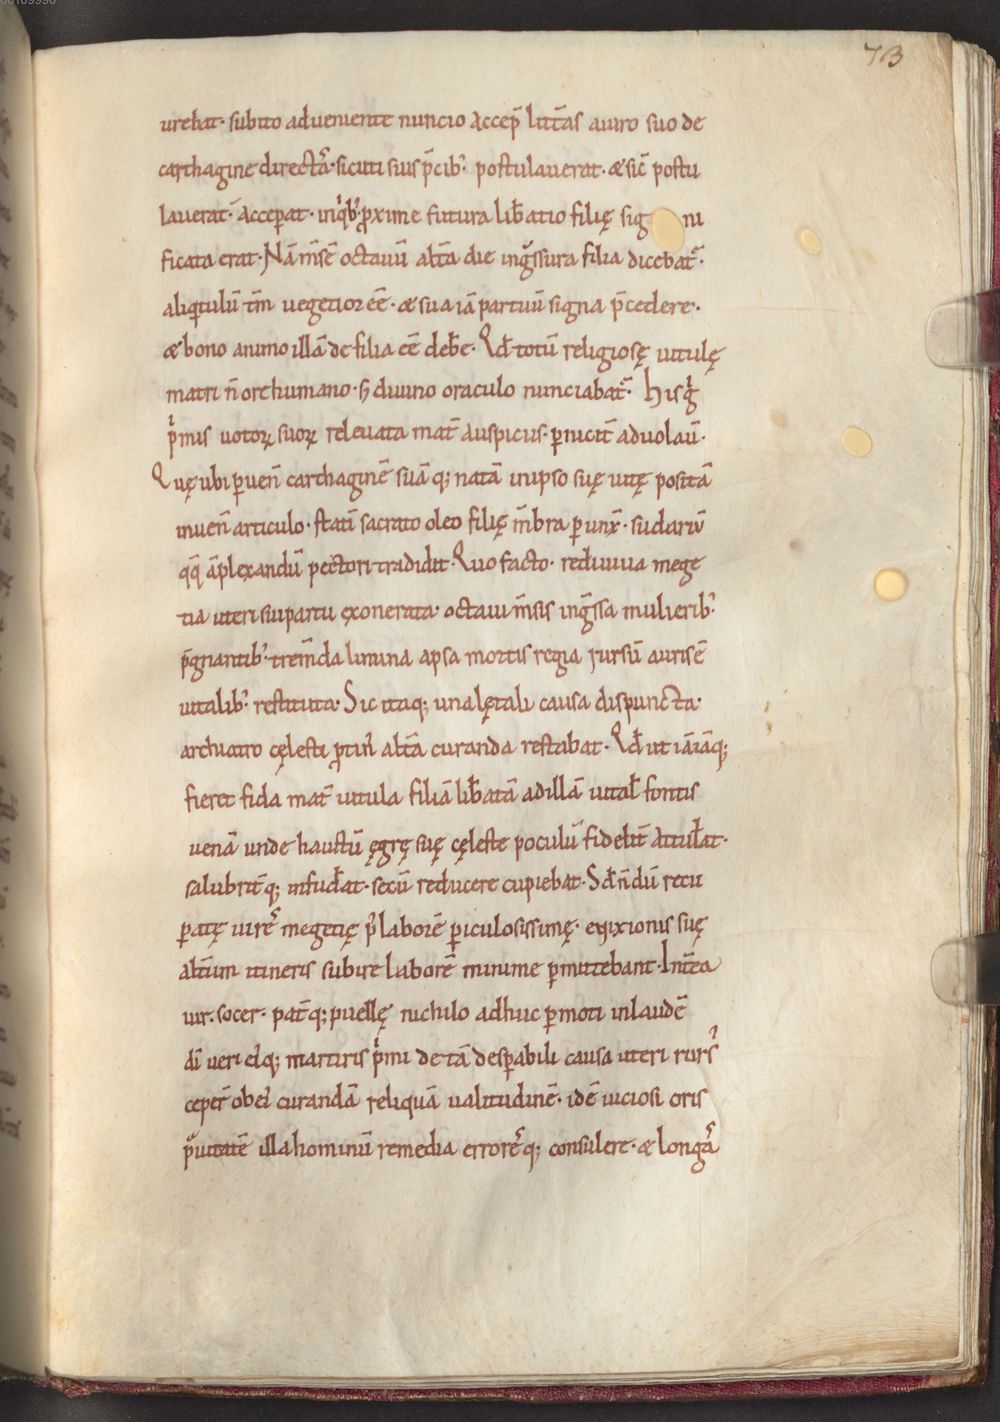 73
urebat· subito adueniente nuncio accep̄ litt̄as auiro suo de
carthagine directas·sicuti suis p̄cib' postulauerat· & sic̄ postu
lauerat· accep̄at· inqͥb' ꝓxime futura lib̄atio filię sig ni
ficata erat· Nā m̄se octauū alt̄a die ingssura filia dicebat'·
aliqͣtulū tm̄ uegetior eē· & sua iā partuū signa p̄cedere·
& bono animo illā de filia eē deb̄e· Qd̄ totū religiosę uitulę
matri n̄ ore humano· s; diuino oraculo nunciabat'· His gͥ
pͥmis uotoꝝ suoꝝ releuata mat̄ auspiciis· ꝑnicit̄ aduolau̅·
Quę ubi ꝑuen̄ carthaginē suā q; natā inipso suę uitę positā
inuen̄ articulo· statī sacrato oleo filię m̄bra ꝑunx̄· sudariū
qq̄ āplexandū pectori tradidit· Quo facto· rediuiua mege
tia uteri sui partu exonerata· octaui m̄sis ing̅ssa mulierib'
p̄gnantib' trem̄da limina apsa mortis regia rursū aurisē
uitalib' restituta· Sic itaq; una lętali causa dispuncta·
archiatro cęlesti ꝓtin' alt̄a curanda restabat· Qd̄ ut iāiāq;
fieret fida mat̄ uitula filiā lib̄atā adillā uital̄ fontis
uenā unde haustū ęgrę suę cęleste poculū fidelit̄ attul̄at·
salubrit̄q; infud̄at· secū reducere cupiebat· Sd̄ n̄dū recu
ꝑatę uires megetię pͥ laborē ꝑiculosissimę· enixionis suę
alt̄um itineris subire laborē minime ꝑmittebant· Int̄ea
uir· socer· pat̄q; puellę nichilo adhuc ꝑmoti inlaudē
dī ueri ei'q; martiris pͥmi de tā desꝑabili causa uteri rurs'
ceper̄ ob ei' curandā reliquā ualitudinē· idē iuciosi oris
illa hominū remedia erroresq; consulere· & longā